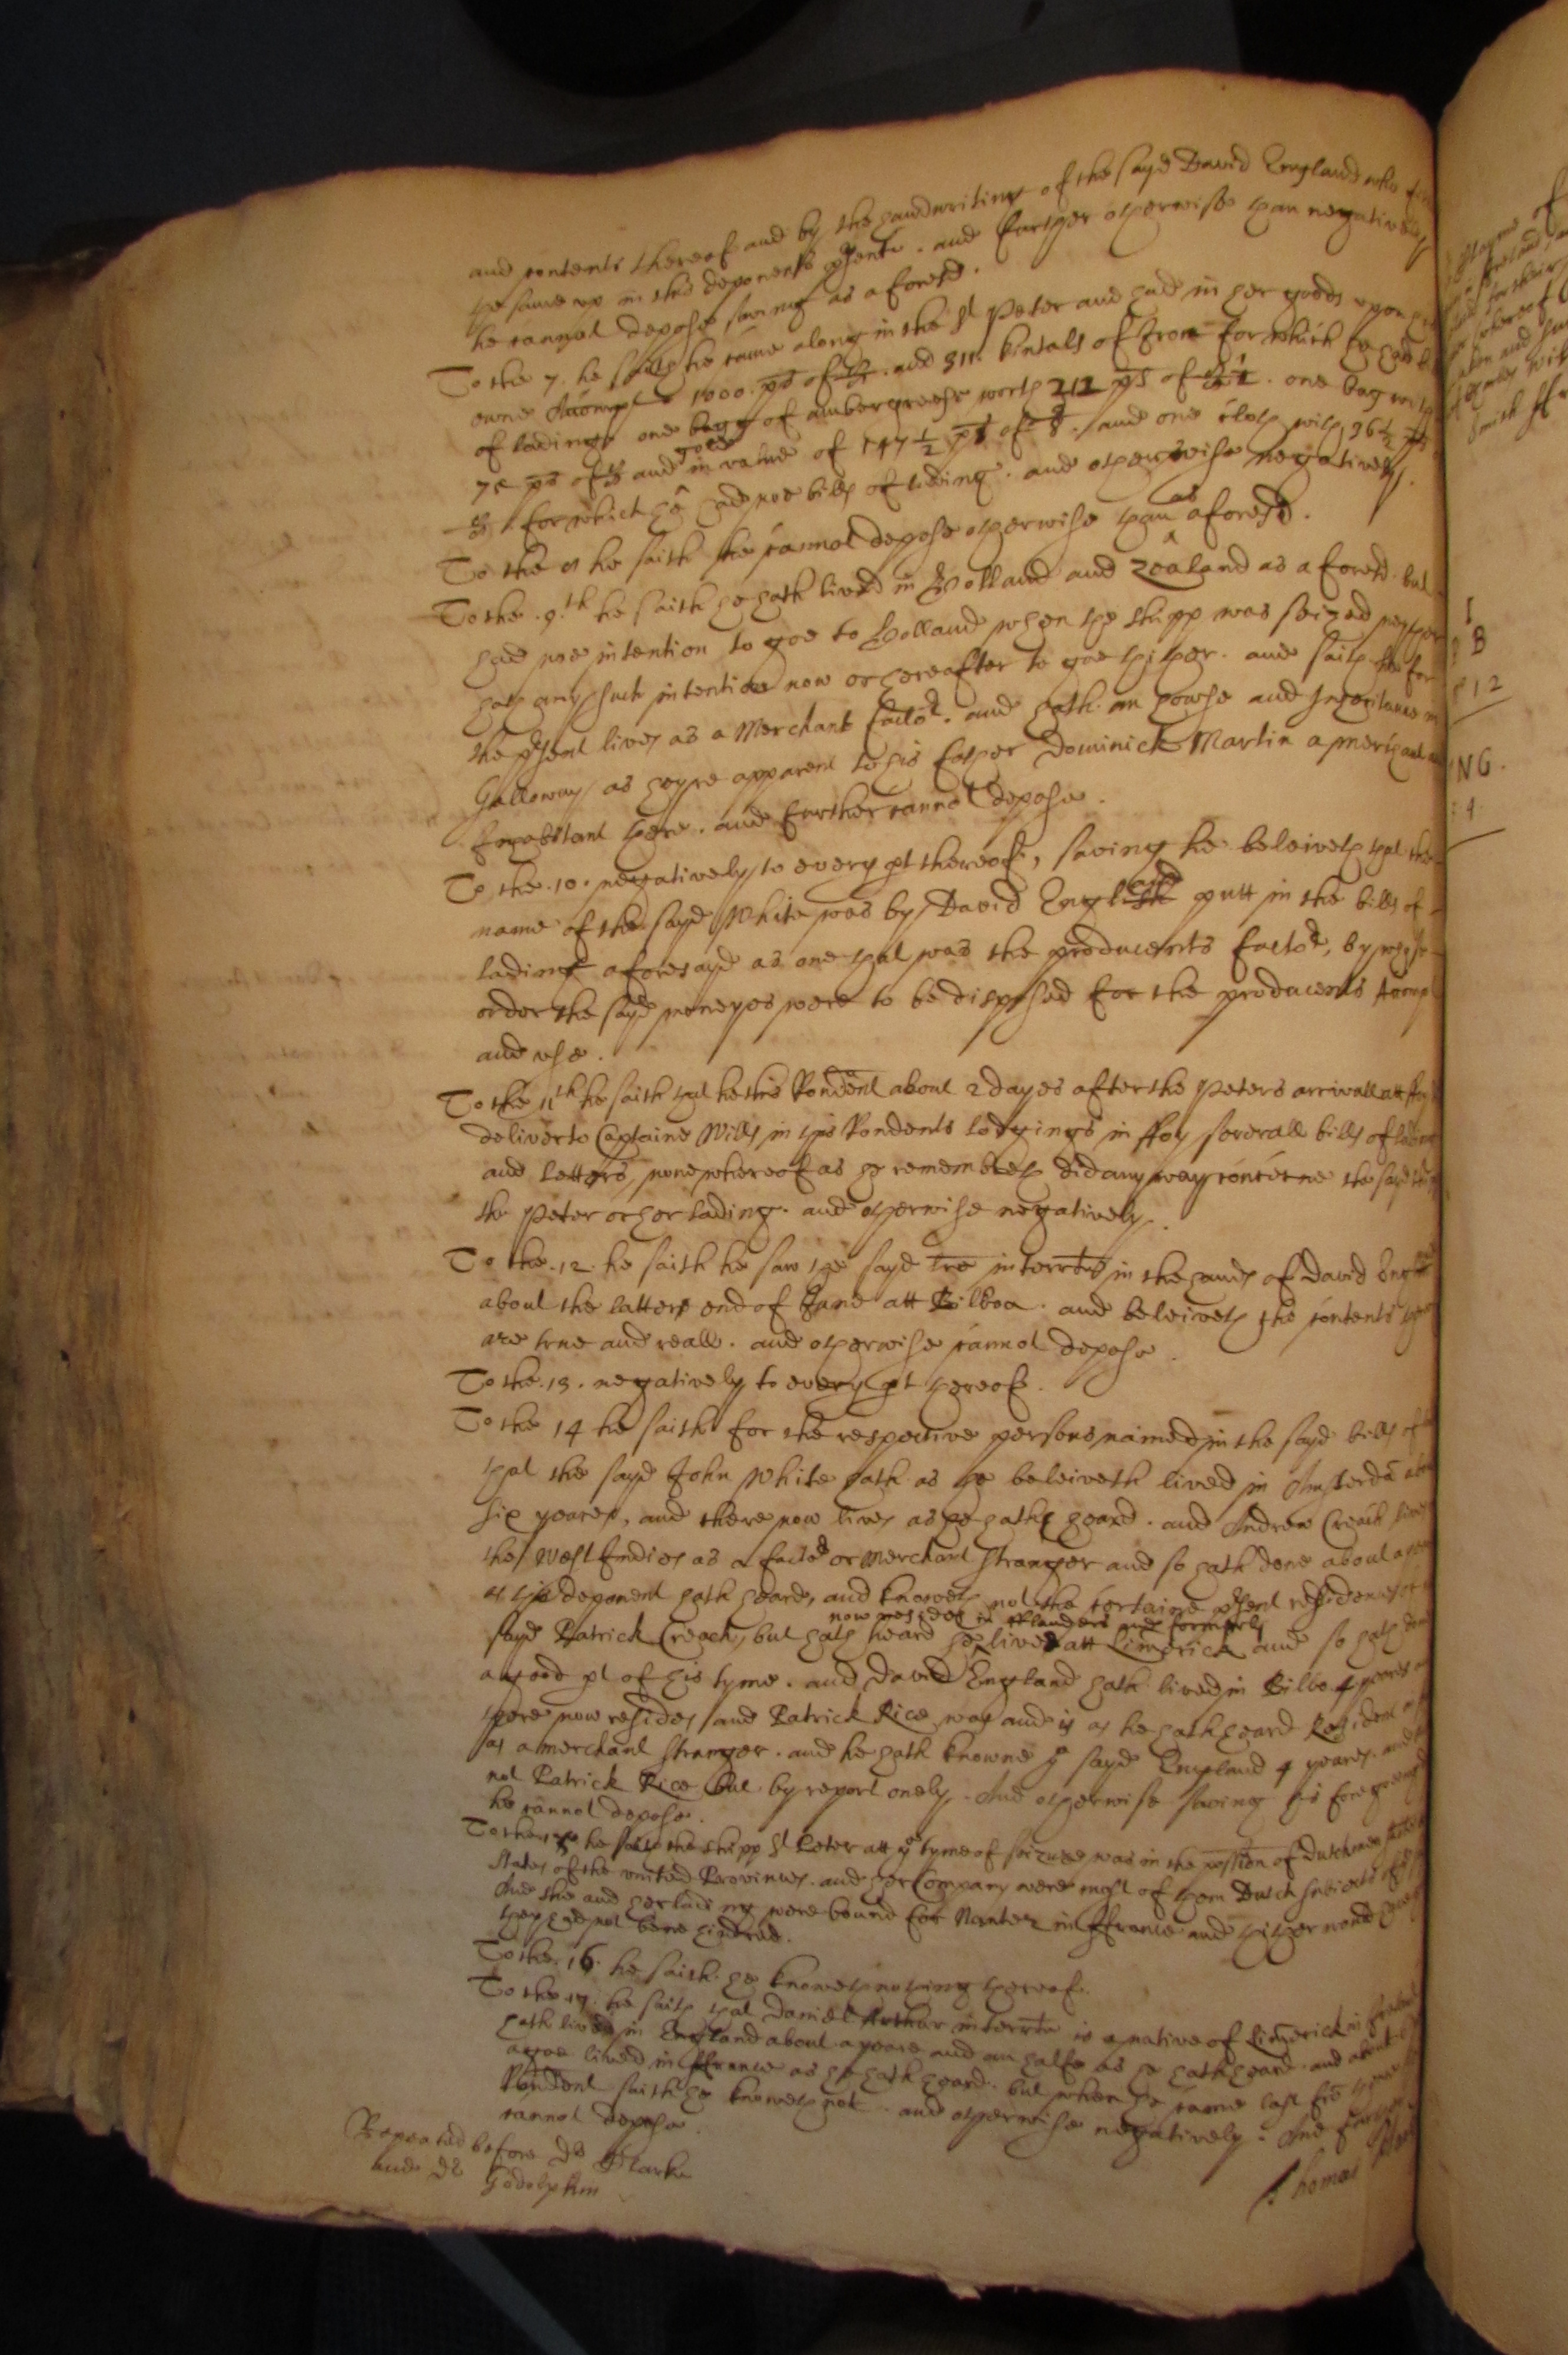 and contents thereof and by the handwriting of the sayd David England who
the same up in this deponents presence. and further otherwise than negatively
he cannot depose saving as aforesd.
To the 7. he saith he came along in the St Peter and had in her goods upon his
owne Accompt 1000. ps of 8/8. and 311. kintals of Iron for which he had
of lading one bagg of ambergreese worth 212 ps of 8/8. one bag with
70 ps of 8/8 and gold in value of 147 ½ ps of 8. and one cloth with 36 ½ ps
8/8 for which hee had noe bills of lading. and otherwise negatively.
To the 8 he saith he cannot depose otherwise than as aforesd.
To the .9.th he saith he hath lived in Holland and Zealand as aforesd. but
had noe intention to goe to Holland when the shipp was seized neyther
hath any such intention now or hereafter to goe thither. and saith he for
the psent lives as a Merchant factor. and hath an howse and Inheritance in
Galloway as heyre apparent to his father Dominick Martin a merchant
Inhabitant there. and further cannot depose.
To the .10. negatively to every pt thereof, saving he beleiveth that the
name of the sayd White was by David English putt in the bills of
lading aforesayd as one that was the producents factor, by whose
order the sayd moneyes were to be disposed for the producents Accompt
and use.
To the 11th he saith that he this Rondent about 2 dayes after the Peters arrivall att ffoy
deliver to Captaine Mills in this Rondents lodgings in ffoy severall bills of lading
and letters, none whereof as he remembreth did any way concerne the sayd
the Peter or her lading. and otherwise negatively.
To the .12. he saith he saw the sayd tre interrte in the hands of David
about the latter end of June att Bilboa. and beleiveth the contents
are true and reall. and otherwise cannot depose.
To the .13. negatively to every pt thereof.
To the 14 he saith for the respective persons named in the sayd bills of
that the sayd John White hath as he beleiveth lived in Amsterdã
six yeares, and there now lives as he hath heard. and Andrew Creach
the West Indies as a factor or Merchant stranger and so hath done about a
as this deponent hath heard, and knoweth not the certaine psent residence of
sayd Patrick Creach, but hath heard he now resides in fflanders and formerly lived att Limerick and so hath
a good pt of his tyme. and David England hath lived in Bilbo 4 yeares
there now resides and Patrick Rice was and is as he hath heard Resident
as a merchant stranger. and he hath knowne ye sayd England 4 yeares. and
not Patrick Rice but by report onely. And otherwise saving his foregoeing
he cannot depose.
To the 15 he saith the shipp St Peter att ye tyme of seizure was in the possion of Dutchmen
States of the united Provinces. and her Company were most of them Dutch subiects
And she and her lading were bound for Nantes in ffrance and thither would
they had not bene hindred.
To the .16. he saith he knoweth nothing thereof.
To the 17. he saith that Daniel Arthur interrte is a native of Limerick in
hath lived in England about a yeare and an halfe as he hath heard. and about
agoe lived in ffrance as he hath heard. but when he came last fro
Rondent saith he knoweth not. and otherwise negatively. And
cannot depose.
Repeated before Dr Clarke
and Dr Godolphin
Thomas